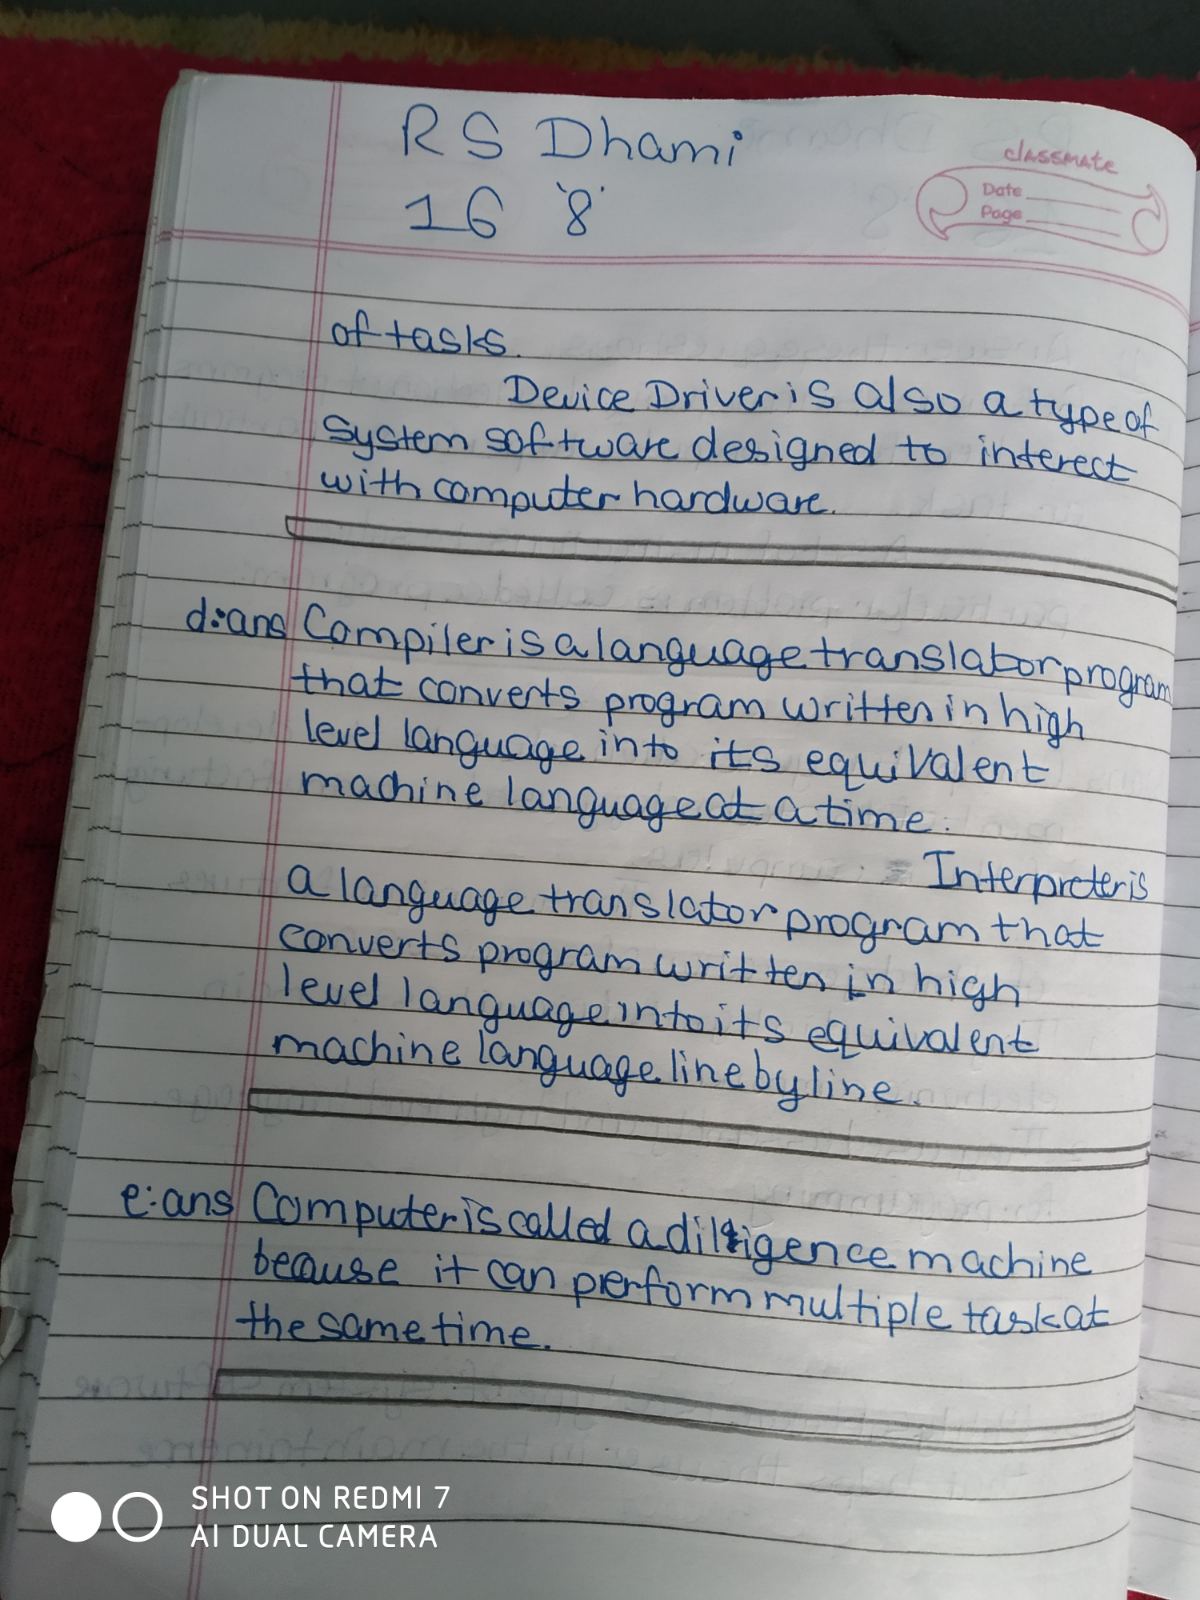 RS Dhami
16 '8'
classmate
Date
Page
of tasks.
Device Driver is also a type of
system software designed to interect
with computer hardware.
d:ans Compiler is a language translator program
that converts program written in high
level language into its equivalent
machine language at a time.
Interpreter is
a language translator program that
converts program written in high
level language into its equivalent
machine language line by line.
e:ans Computer is called a diligence machine
because it can perform multiple task at
the same time.
SHOT ON REDMI 7
AI DUAL CAMERA